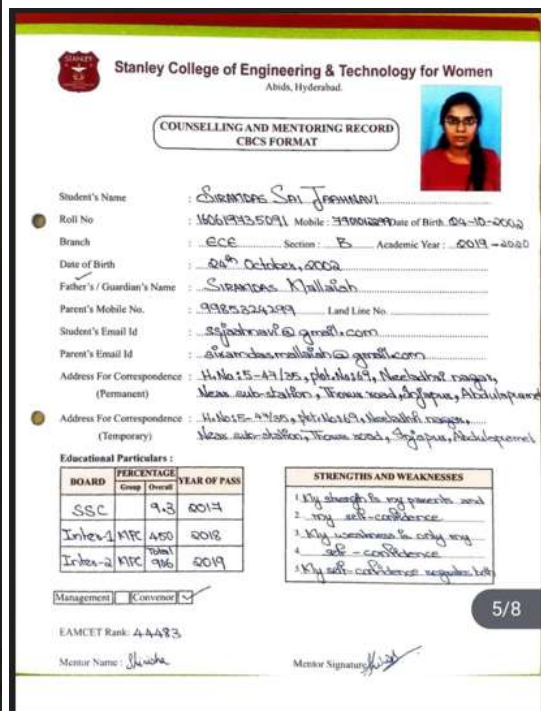 STANLEY
Stanley College of Engineering & Technology for Women
Abids, Hyderabad.
COUNSELLING AND MENTORING RECORD
CBCS FORMAT
Student's Name : SIRAMDAS SAI JAAHNAVI
Roll No : 160619735091 Mobile : Date of Birth 24-10-2002
Branch : ECE Section : B Academic Year : 2019-2020
Date of Birth : 24th October, 2002
Father's / Guardian's Name : SIRAMDAS Mallaiah
Parent's Mobile No. : 9985324299 Land Line No.
Student's Email Id : ssjaahnavi@gmail.com
Parent's Email Id : siramdasmallaiah@gmail.com
Address For Correspondence : H.No:5-47/35, plot.No:69, Neeladhri nagar,
(Permanent) Near sub-station, Thorur road, Injapur, Abdulapurmet
Address For Correspondence : H.No:5-47/35, plot.No:69, Neeladhri nagar,
(Temporary) Near sub-station, Thorur road, Injapur, Abdulapurmet
Educational Particulars :
BOARD PERCENTAGE YEAR OF PASS
Group Overall
SSC 9.3 2017
Inter-1 MPC 450 2018
Inter-2 MPC Total 906 2019
STRENGTHS AND WEAKNESSES
1 My strength is my parents and
2 my self-confidence
3 My weakness is only my
4 self-confidence
5 My self-confidence both
Management Convenor
5/8
EAMCET Rank: 44483
Mentor Name : Shirisha
Mentor Signature